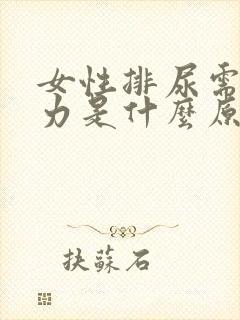 女性排尿需
力是什麼原
抉蘇石